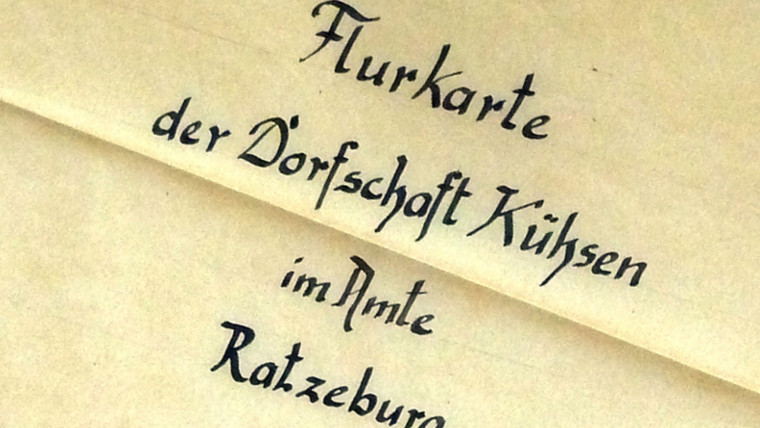 Flurkarte
der Dorfschaft Kühsen
im Amte
Ratzeburg